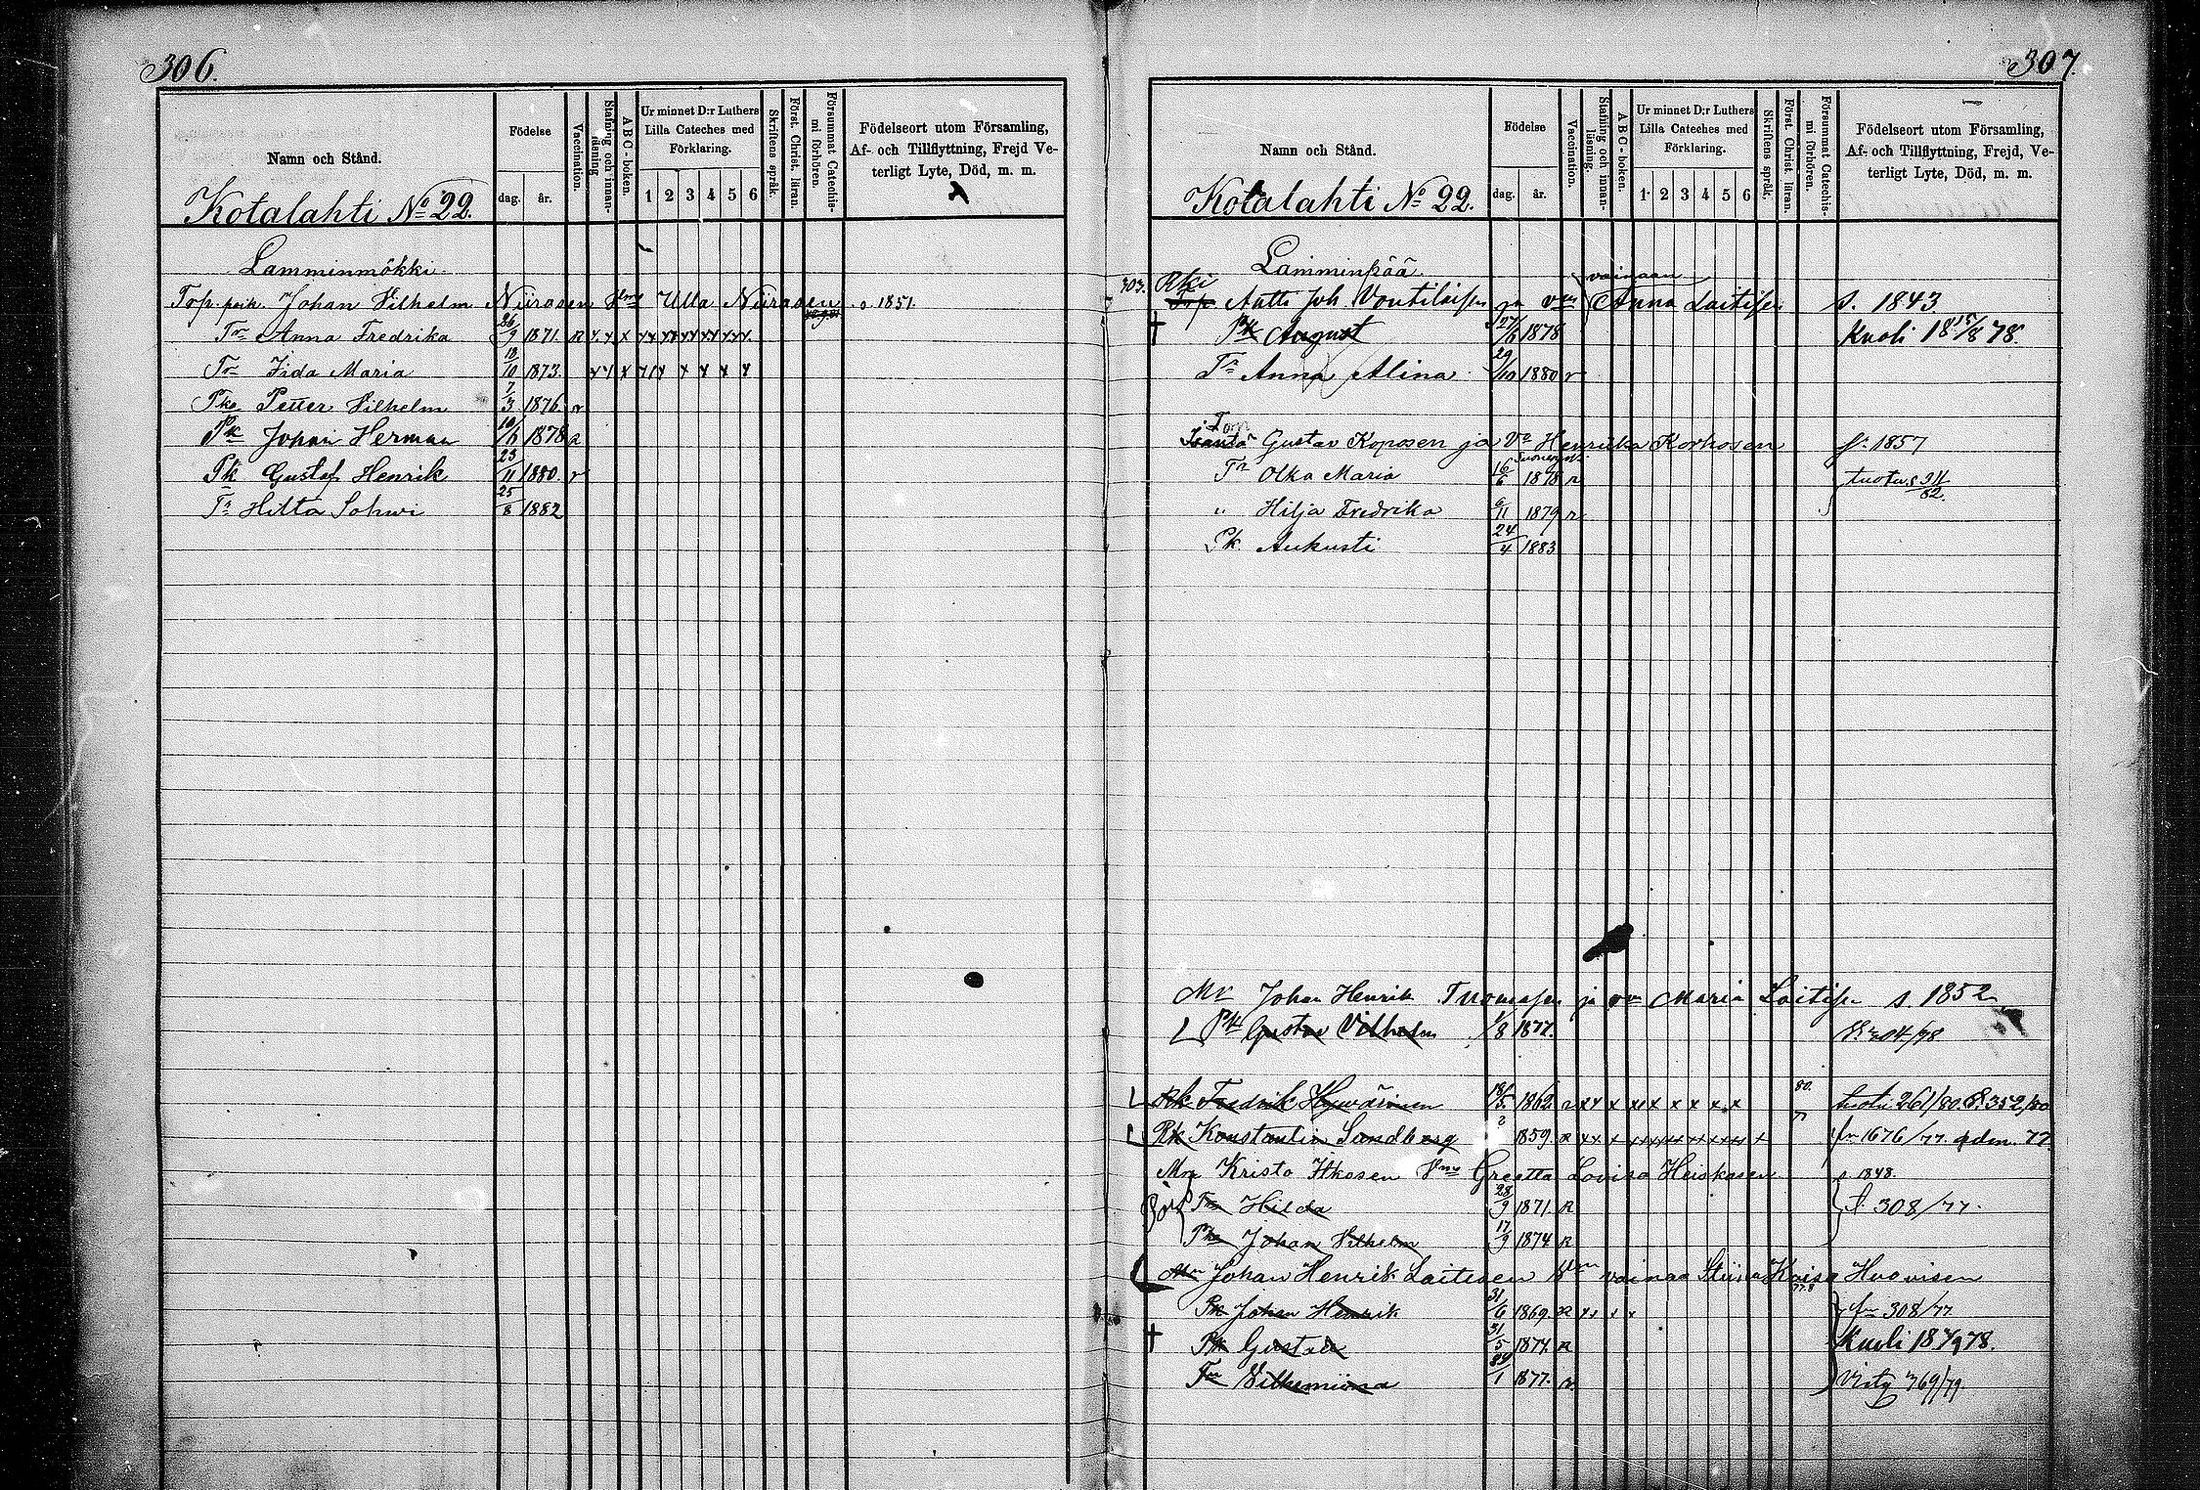 306.
Namn och Stånd.
Födelse
dag. år.
Vaccination.
Stafning och innanläsning
A B C-boken.
Ur minnet D:r Luthers Lilla Cateches med Förklaring.
1 2 3 4 5 6
Skriftens språk.
Först. Christ. läran.
Försummat Catechismi förhören.
Födelseort utom Församling,
Af- och Tillflyttning, Frejd Veterligt Lyte, Död, m. m.
Kotalahti No 22.
Lamminmökki
Top. poik. Johan Vilhelm Niirasen Ulla Niirasen s. 1851.
Tr Anna Fredrika 26/9 1871. R x x x xx xx xx xx xx xx
Tr Iida Maria 13/10 1873. x x x x x x x x
Pka Petter Vilhelm 7/3 1876. r
Pk Johan Herman 10/6 1878 R
Pk Gustaf Henrik 23/11 1880. r
Tr Hilta Sohwi 25/8 1882
307.
Namn och Stånd.
Födelse
dag. år.
Vaccination.
Stafning och innanläsning.
A B C-boken.
Ur minnet D:r Luthers Lilla Cateches med Förklaring.
1 2 3 4 5 6
Skriftens språk.
Först. Christ. läran.
Försummat Catechismi förhören.
Födelseort utom Församling,
Af- och Tillflyttning, Frejd, Veterligt Lyte, Död, m. m.
Kotalahti No 22.
Lamminpää
vainaan
303. Rki Antti Joh. Voutilaisen ja vm Anna Laitisen s. 1843
† Pk August 27/6 1878 Kuoli 18 15/8 78.
Tr Anna Alina 29/10 1880 r
Gustav Koposen ja Va Henriika Korhosen s. 1857
Tr Olka Maria 16/6 1878 R
" Hilja Fredrika 6/11 1879 R
Pk. Aukusti 24/4 1883
Mr Johan Henrik Tuomasen ja vm Maria Laitisen s. 1852
Pk Gustav Vilhelm 1/8 1877.
Rk Fredrik Hyvärinen 18/5 1862 x x x xx x x x x x 80. 261/80. S. 352/80
Rk Konstantin Sandberg 1859. R 1676/77. adm. 77
Mr Kristo Itkosen Greetta Lovisa Heiskasen s 1848.
Tr Hilda 28/9 1871. R S. 308/77.
Pka Johan Vilhelm 17/9 1874 R
Mr Johan Henrik Laitisen vainaa Stiina Kaisa Huovisen
Pk Johan Henrik 31/6 1869. R x x x x 308/77
† Pk Gustav 31/5 1874. R Kuoli 18 78.
Tr Vilhemiina 1877. R 769/79.